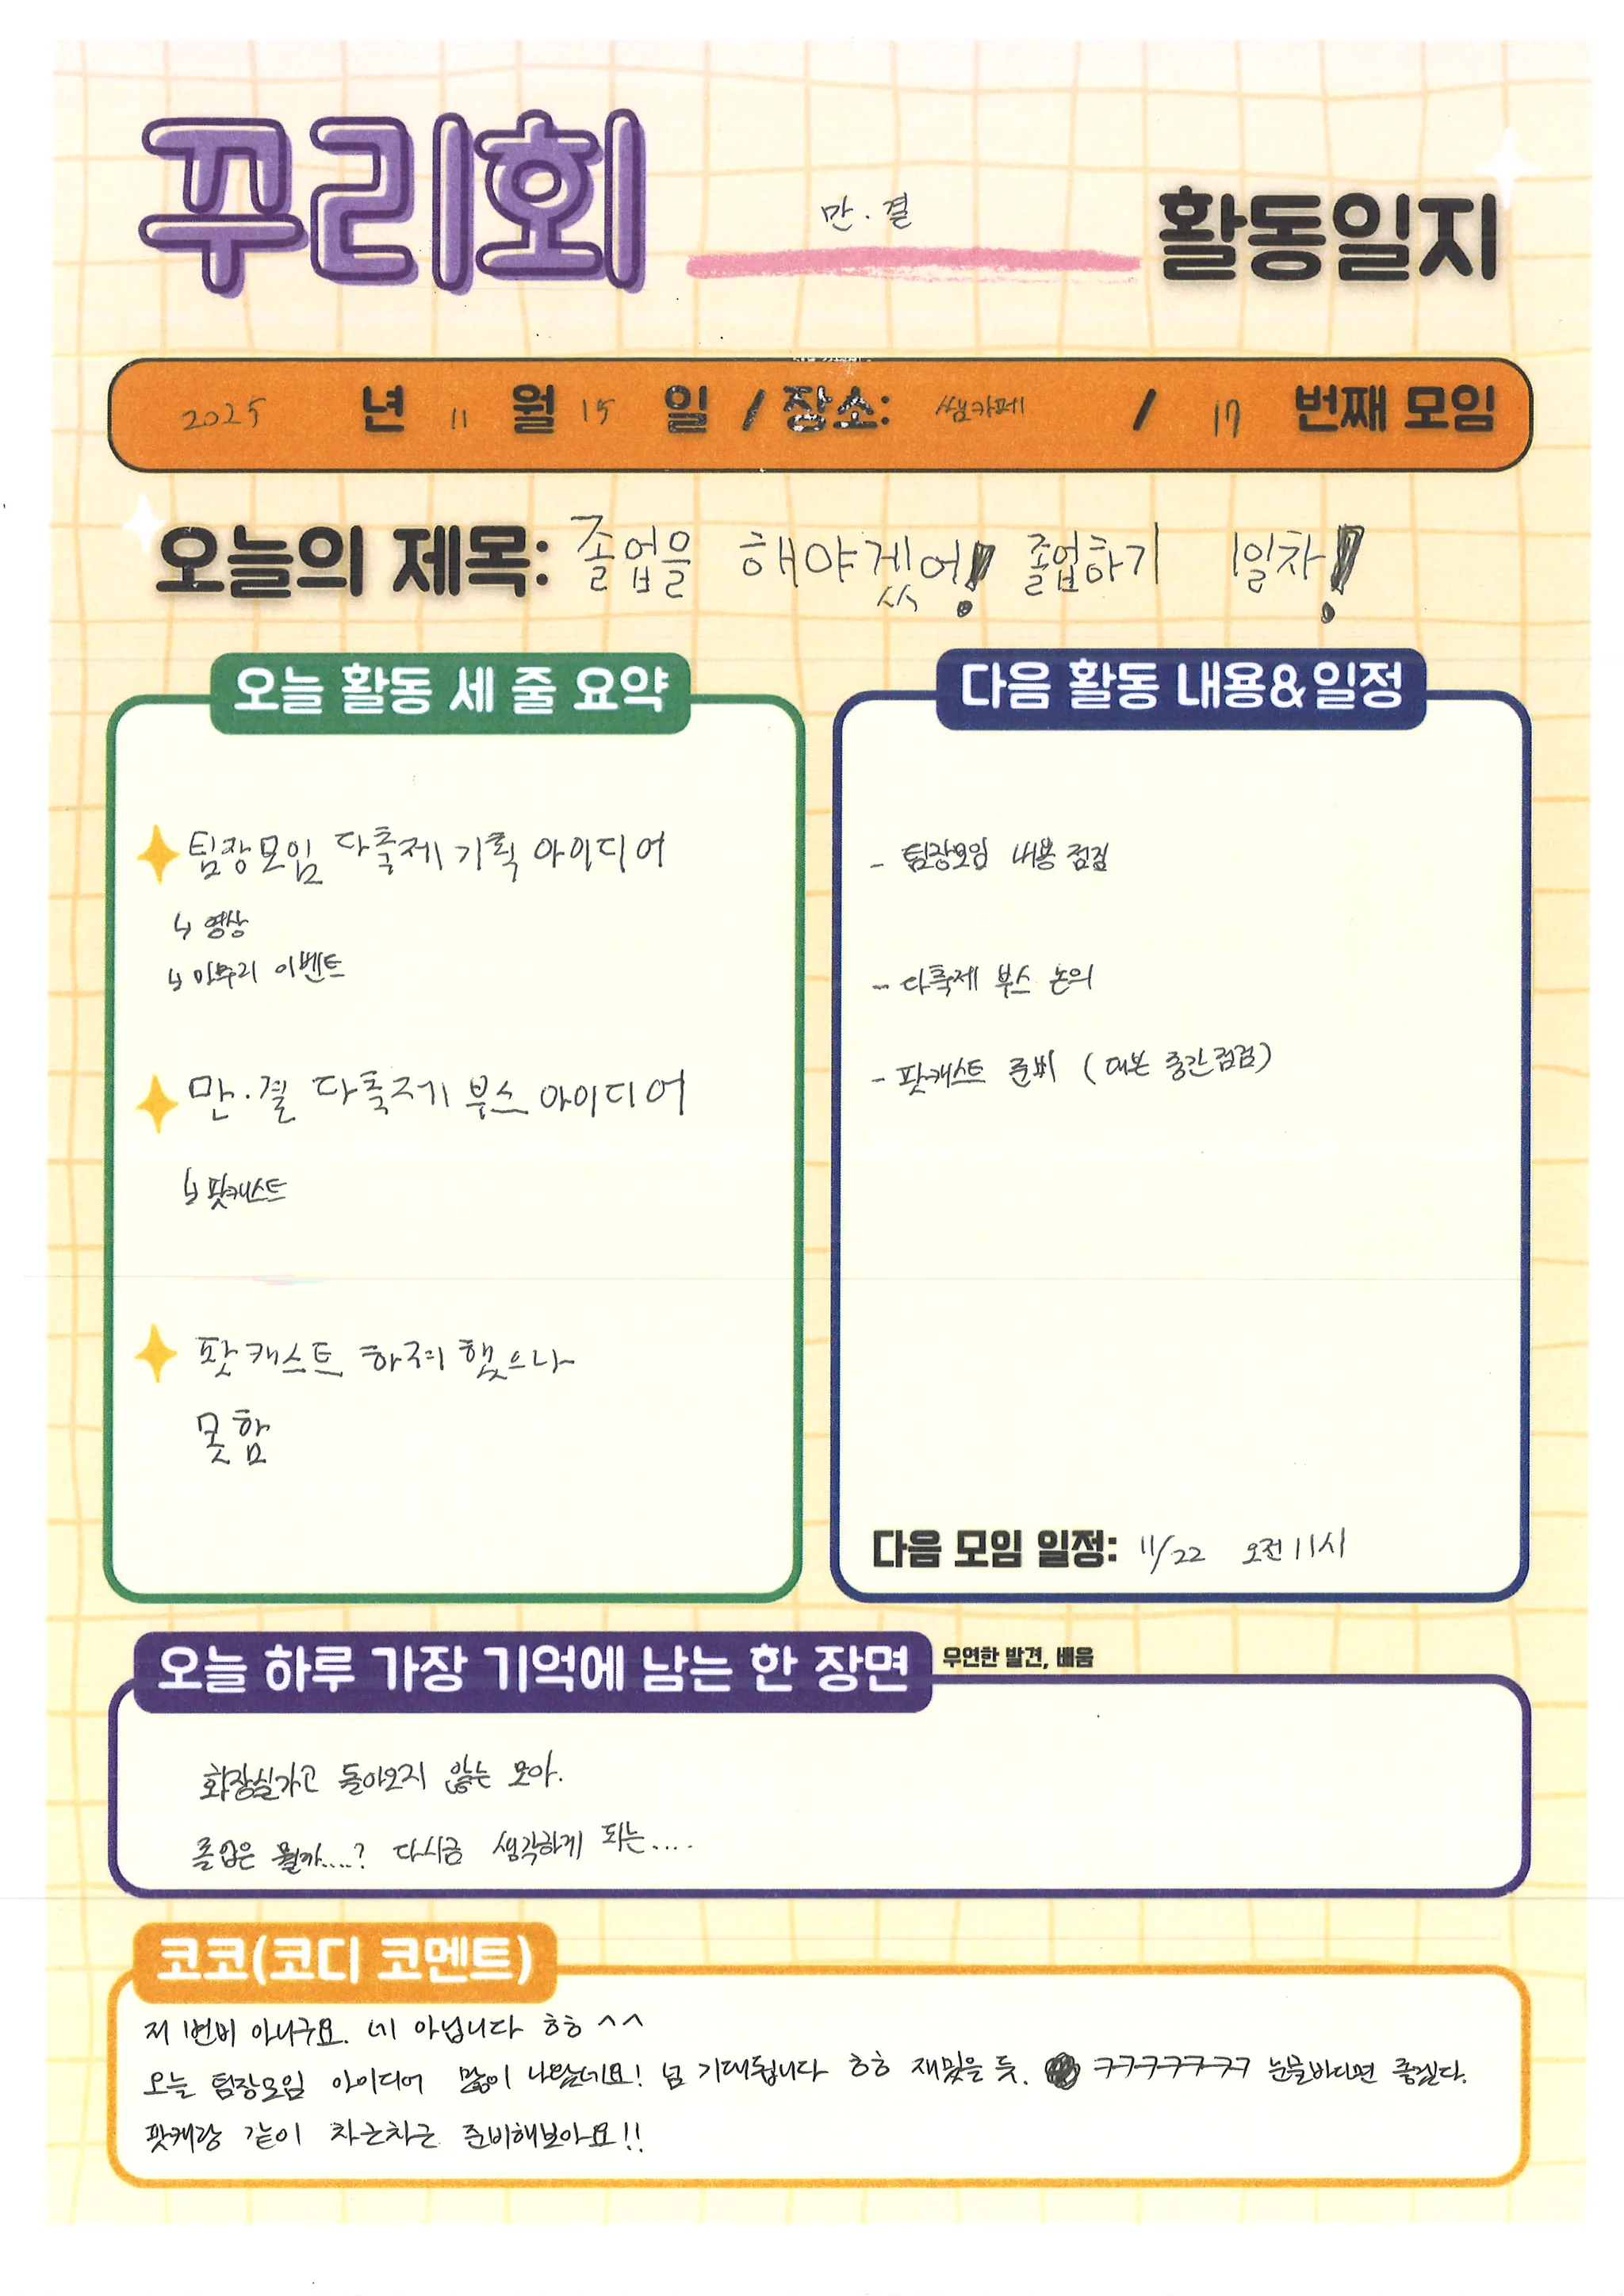 꾸리회 만.결 활동일지
2025 년 11 월 15 일 / 장소: 쌤카페 / 17 번째 모임
오늘의 제목: 졸업을 해야겠어! 졸업하기 1일차!
오늘 활동 세 줄 요약
팀장모임 다축제 기획 아이디어
↳ 영상
↳ 마무리 이벤트
만.결 다축제 부스 아이디어
↳ 팟캐스트
팟캐스트 하려 했으나
못함
다음 활동 내용&일정
- 팀장모임 내용 점검
- 다축제 부스 논의
- 팟캐스트 준비 (대본 중간점검)
다음 모임 일정: 11/22 오전 11시
오늘 하루 가장 기억에 남는 한 장면 우연한 발견, 배움
화장실가고 돌아오지 않는 모아.
졸업은 뭘까....? 다시금 생각하게 되는....
코코(코디 코멘트)
저 1번비 아니구요. 네 아닙니다 ㅎㅎ ^^
오늘 팀장모임 아이디어 많이 나왔네요! 넘 기대됩니다 ㅎㅎ 재밌을 듯. ㅋㅋㅋㅋㅋㅋㅋ 눈물바다면 좋겠다.
팟캐랑 같이 차근차근 준비해보아요!!